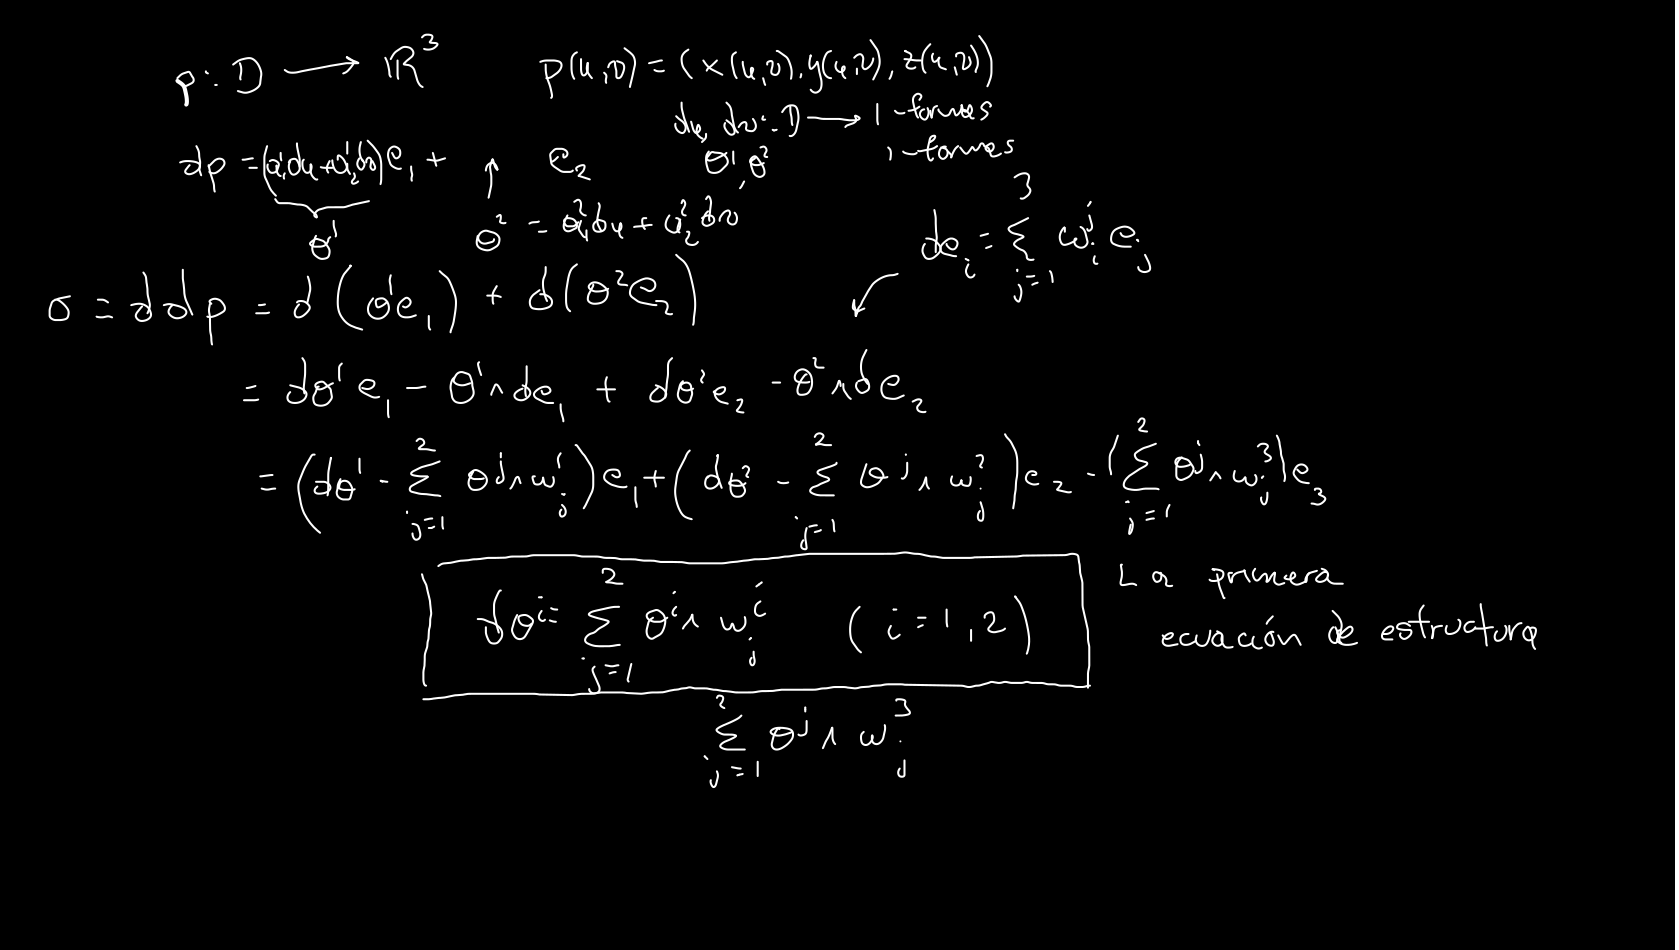 p : D ⟶ ℝ³   p(u,v) = (x(u,v), y(u,v), z(u,v))
du, dv : D ⟶ 1-formas
θ¹, θ²   1-formas
dp = (a¹₁du + a¹₂dv)e₁ + ↑ e₂
θ¹   θ² = a²₁du + a²₂dv
deᵢ = Σ_{j=1}^{3} ωᵢʲ eⱼ
0 = ddp = d(θ¹e₁) + d(θ²e₂)
= dθ¹e₁ − θ¹∧de₁ + dθ²e₂ − θ²∧de₂
= (dθ¹ − Σ_{j=1}^{2} θʲ∧ωⱼ¹)e₁ + (dθ² − Σ_{j=1}^{2} θʲ∧ωⱼ²)e₂ − (Σ_{j=1}^{2} θʲ∧ωⱼ³)e₃
dθⁱ = Σ_{j=1}^{2} θⁱ∧ωⱼⁱ   (i=1,2)
La primera
ecuación de estructura
Σ_{j=1}^{2} θʲ∧ωⱼ³